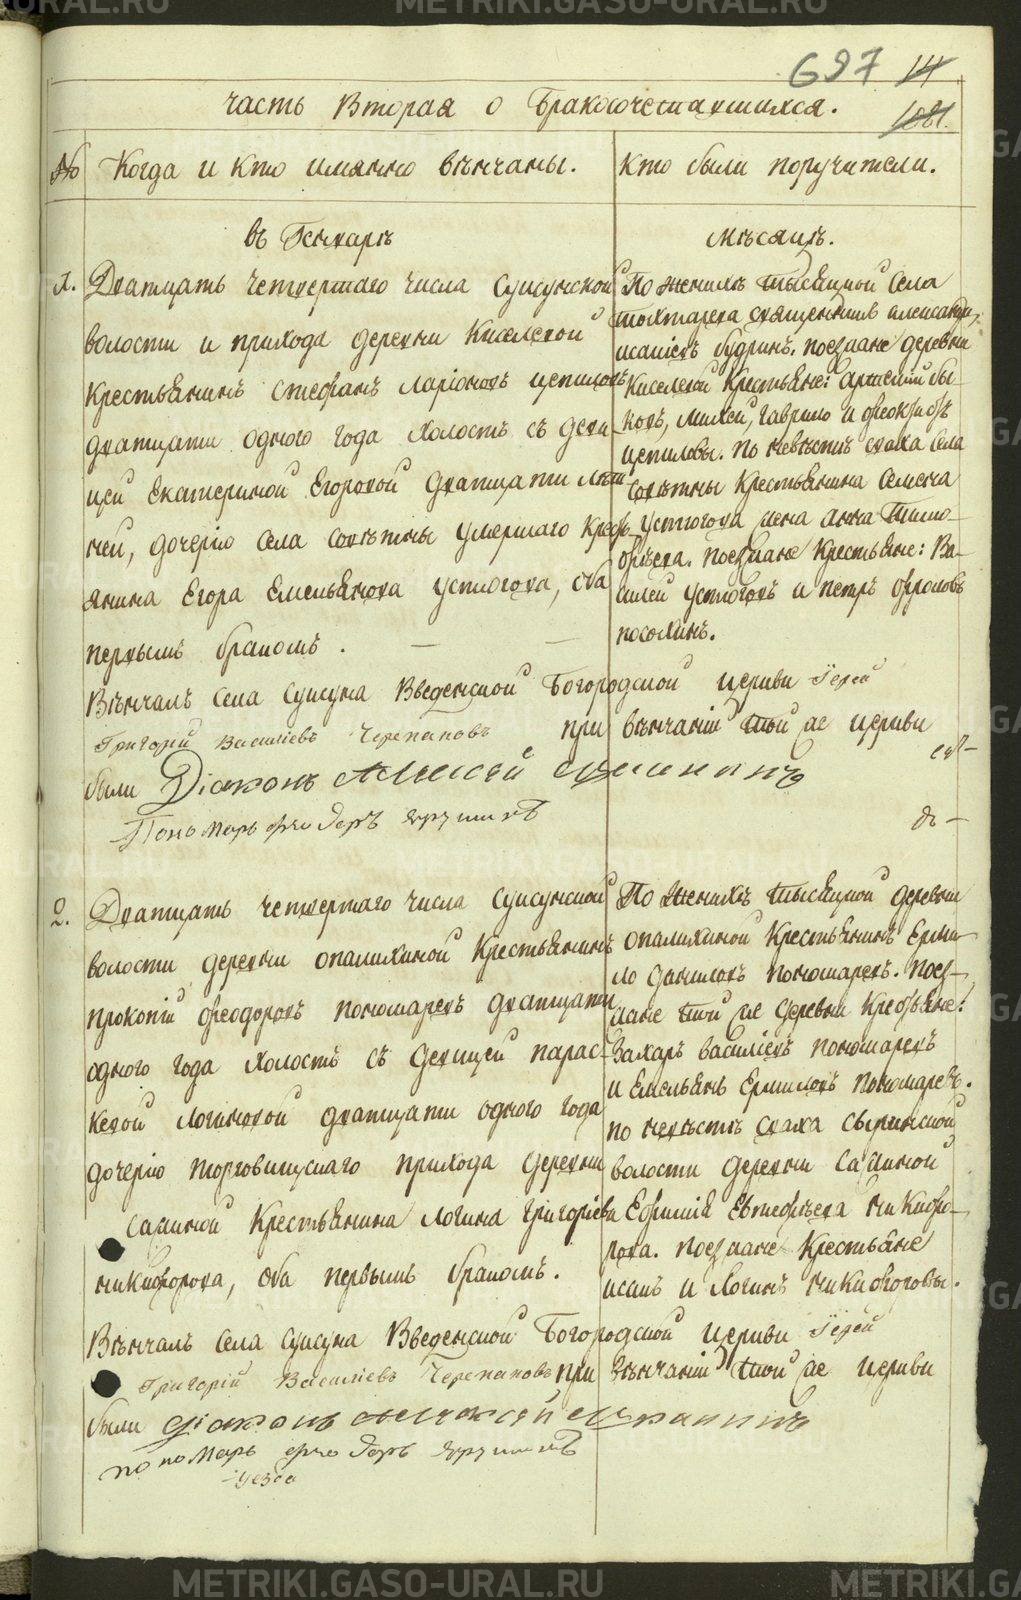 697 141
часть Вторая о Бракосочетавшихся. 1081.
№ Когда и кто имянно вѣнчаны. Кто были поручители.
въ Генварѣ Мѣсяцѣ.
1. Дватцать четвертаго числа Суксунской
волости и прихода деревни Киселевой
Крестьянинъ Стефанъ Ларіоновъ Цепиловъ
дватцати одного года холостъ съ деви
цей Екатериной Егоровой дватцати лѣт
ней, дочерію села Совѣтны умершаго Кресть
янина Егора Емельянова Устюгова, оба
первымъ бракомъ.
По женихѣ тысяцкой села
Тохтарева священникъ Александръ
Исаіевъ Будринъ. поезжане деревни
Киселевой Крестьяне: Арсений Бы-
ковъ, Алексей, Гаврило и Феоктистъ
Цепиловы. по невѣстѣ сваха села
Совѣтны Крестьянина Семена
Устюгова жена Анна Тимо-
фѣева. поезжане Крестьяне: Ва-
силей Устюговъ и Петръ Фроловъ
Посохинъ.
Вѣнчалъ села Суксуна Введенской Богородской церкви Іерей
Григорій Василіевъ Черепановъ при вѣнчаніи той же церкви
были Діаконъ Алексей
Пономарь Феодоръ
2. Дватцать четвертаго числа Суксунской
волости деревни Опалихиной Крестьянинъ
Прокопій Феодоровъ Пономаревъ дватцати
одного года холостъ съ девицей Парас-
кевой Логиновой дватцати одного года
дочерію Торговишскаго прихода деревни
Сажиной Крестьянина Логина Григоріева
Никифорова, оба первымъ бракомъ.
По женихѣ тысяцкой деревни
Опалихиной Крестьянинъ Ерми-
ло Даниловъ Пономаревъ. поез-
жане той же деревни Крестьяне:
Захаръ Василіевъ Пономаревъ
и Емельянъ Ермиловъ Пономаревъ.
по невѣстѣ сваха Сыринской
волости деревни Сажиной
Ефимія Евтефѣева Никифо-
рова. поезжане Крестьяне
Исакъ и Логинъ Никифоровы.
Вѣнчалъ села Суксуна Введенской Богородской церкви Іерей
Григорій Василіевъ Черепановъ при вѣнчаніи той же церкви
были Діаконъ Алексей
пономарь Феодоръ
METRIKI.GASO-URAL.RU